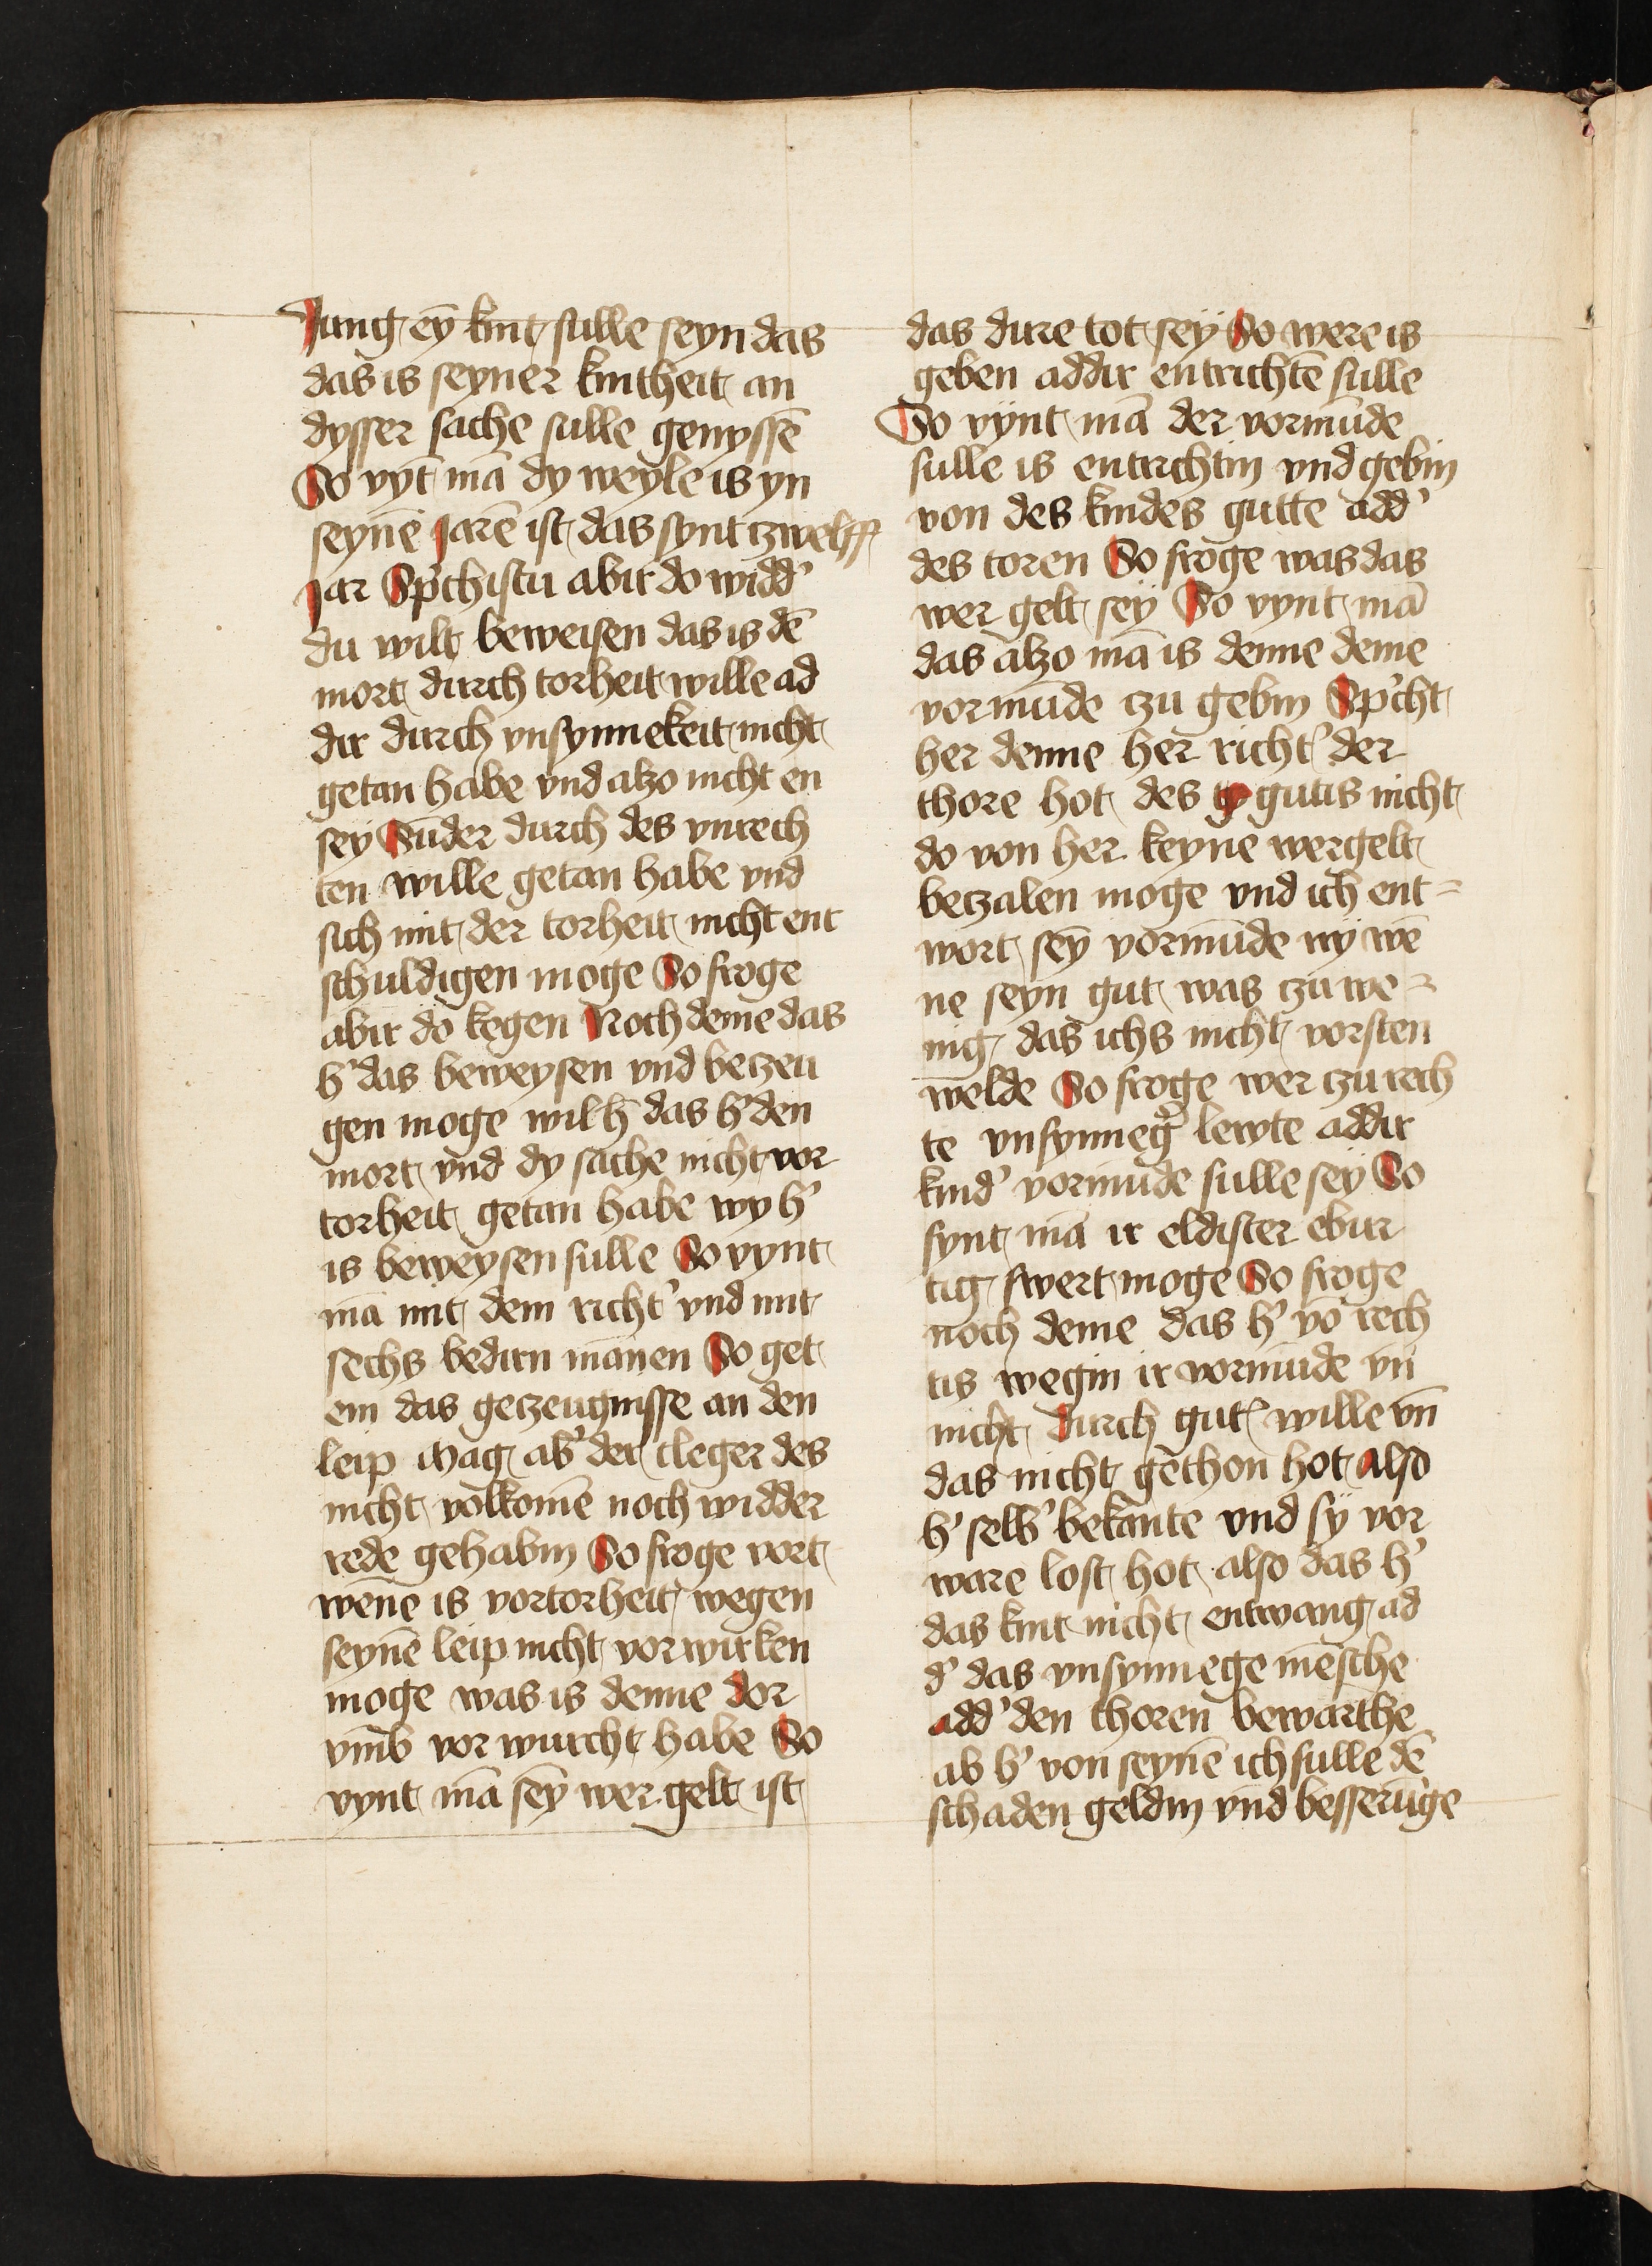 Jung ey̅ kint sulle seyn das
das is seyner kintheit an
dysser sache sulle genysse̅
So vyt̅ ma̅ dy weyle is yn
seyne̅ Jare̅ ist das synt zwelff
Jar Sp'chistu abir do widd'
du wilt beweisen das is de̅
mort durch torheit wille ad
dir durch vnsynnekeit nicht
getan habe vnd alzo nicht en
sey Su̅der durch des vnrech
ten wille getan habe vnd
sich mit der torheit nicht ent
schuldigen moge So froge
abir do kegen Noch deme das
h' das beweysen vnd betzeu
gen moge wil h' das h' den
mort vnd dy sache nicht vor
torheit getan habe wy h'
is beweysen sulle So vynt
ma̅ mit dem richt' vnd mit
sechs bedirn ma̅nen So get
em das getzeugnisse an den
leip Mag ab' der cleger des
nicht volkome̅ noch widder
rede gehabin So froge vort
wene̅ is vortorheit wegen
seyne̅ leip nicht vorwirken
moge was is denne dor
vmb vor wurcht habe So
vynt ma̅ sey̅ wer gelt ist
das dire tot sey So were is
geben addir entrichte̅ sulle
So vynt ma̅ der vormu̅de
sulle is entrichtin vnd gebin
von des kindes gutte add'
des toren So froge was das
wer gelt sey So vynt ma̅
das alzo ma̅ is denne deme
vormu̅de tzu gebin Sp'cht
her denne her richt' der
thore hot des gutis nicht
do von her keyne wergelt
betzalen moge vnd ich ent=
wort sey̅ vormu̅de wy we̅
ne seyn gut was tzu we=
nig das ichs nicht vorsten
welde So froge wer tzu rech
te vnsynneg' lewte addir
kind' vormu̅de sulle sey So
fynt ma̅ ir eldister ebir
tig swert moge So froge
noch deme das h' vo̅ rech
tis wegin ir vormu̅de vn̅
nicht durch gut' wille vn̅
das nicht gethon hot also
h' selb' beka̅nte vnd sy vor
ware lost hot also das h'
das kint nicht entwang ad
d' das vnsynnege me̅sche
add' den thoren bewarthe
ab h' von seyne̅ ich sulle de̅
schaden geldin vnd besseru̅ge